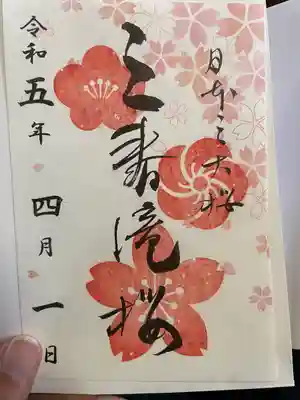 日本三大桜
三春滝桜
令和五年 四月 一日